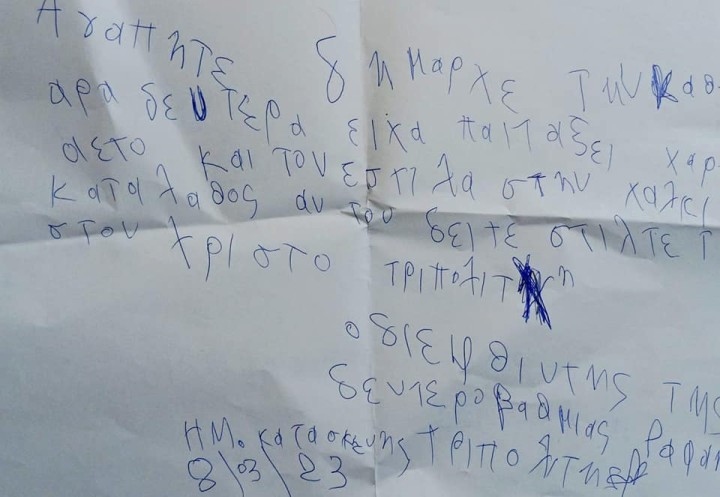 Αγαπητε δημαρχε την καθ
αρα δευτερα ειχα παιταξει χαρ
αετο και τον εστιλα στην χαλκι
καταλαθος αν τον δειτε στιλτε τ
στον Χριστο τριπολιτη
ο διεφθιντης της
δευτεροβαθμιας ραφαη
ΗΜ. κατασκευης τριπολιτης
8/03/23